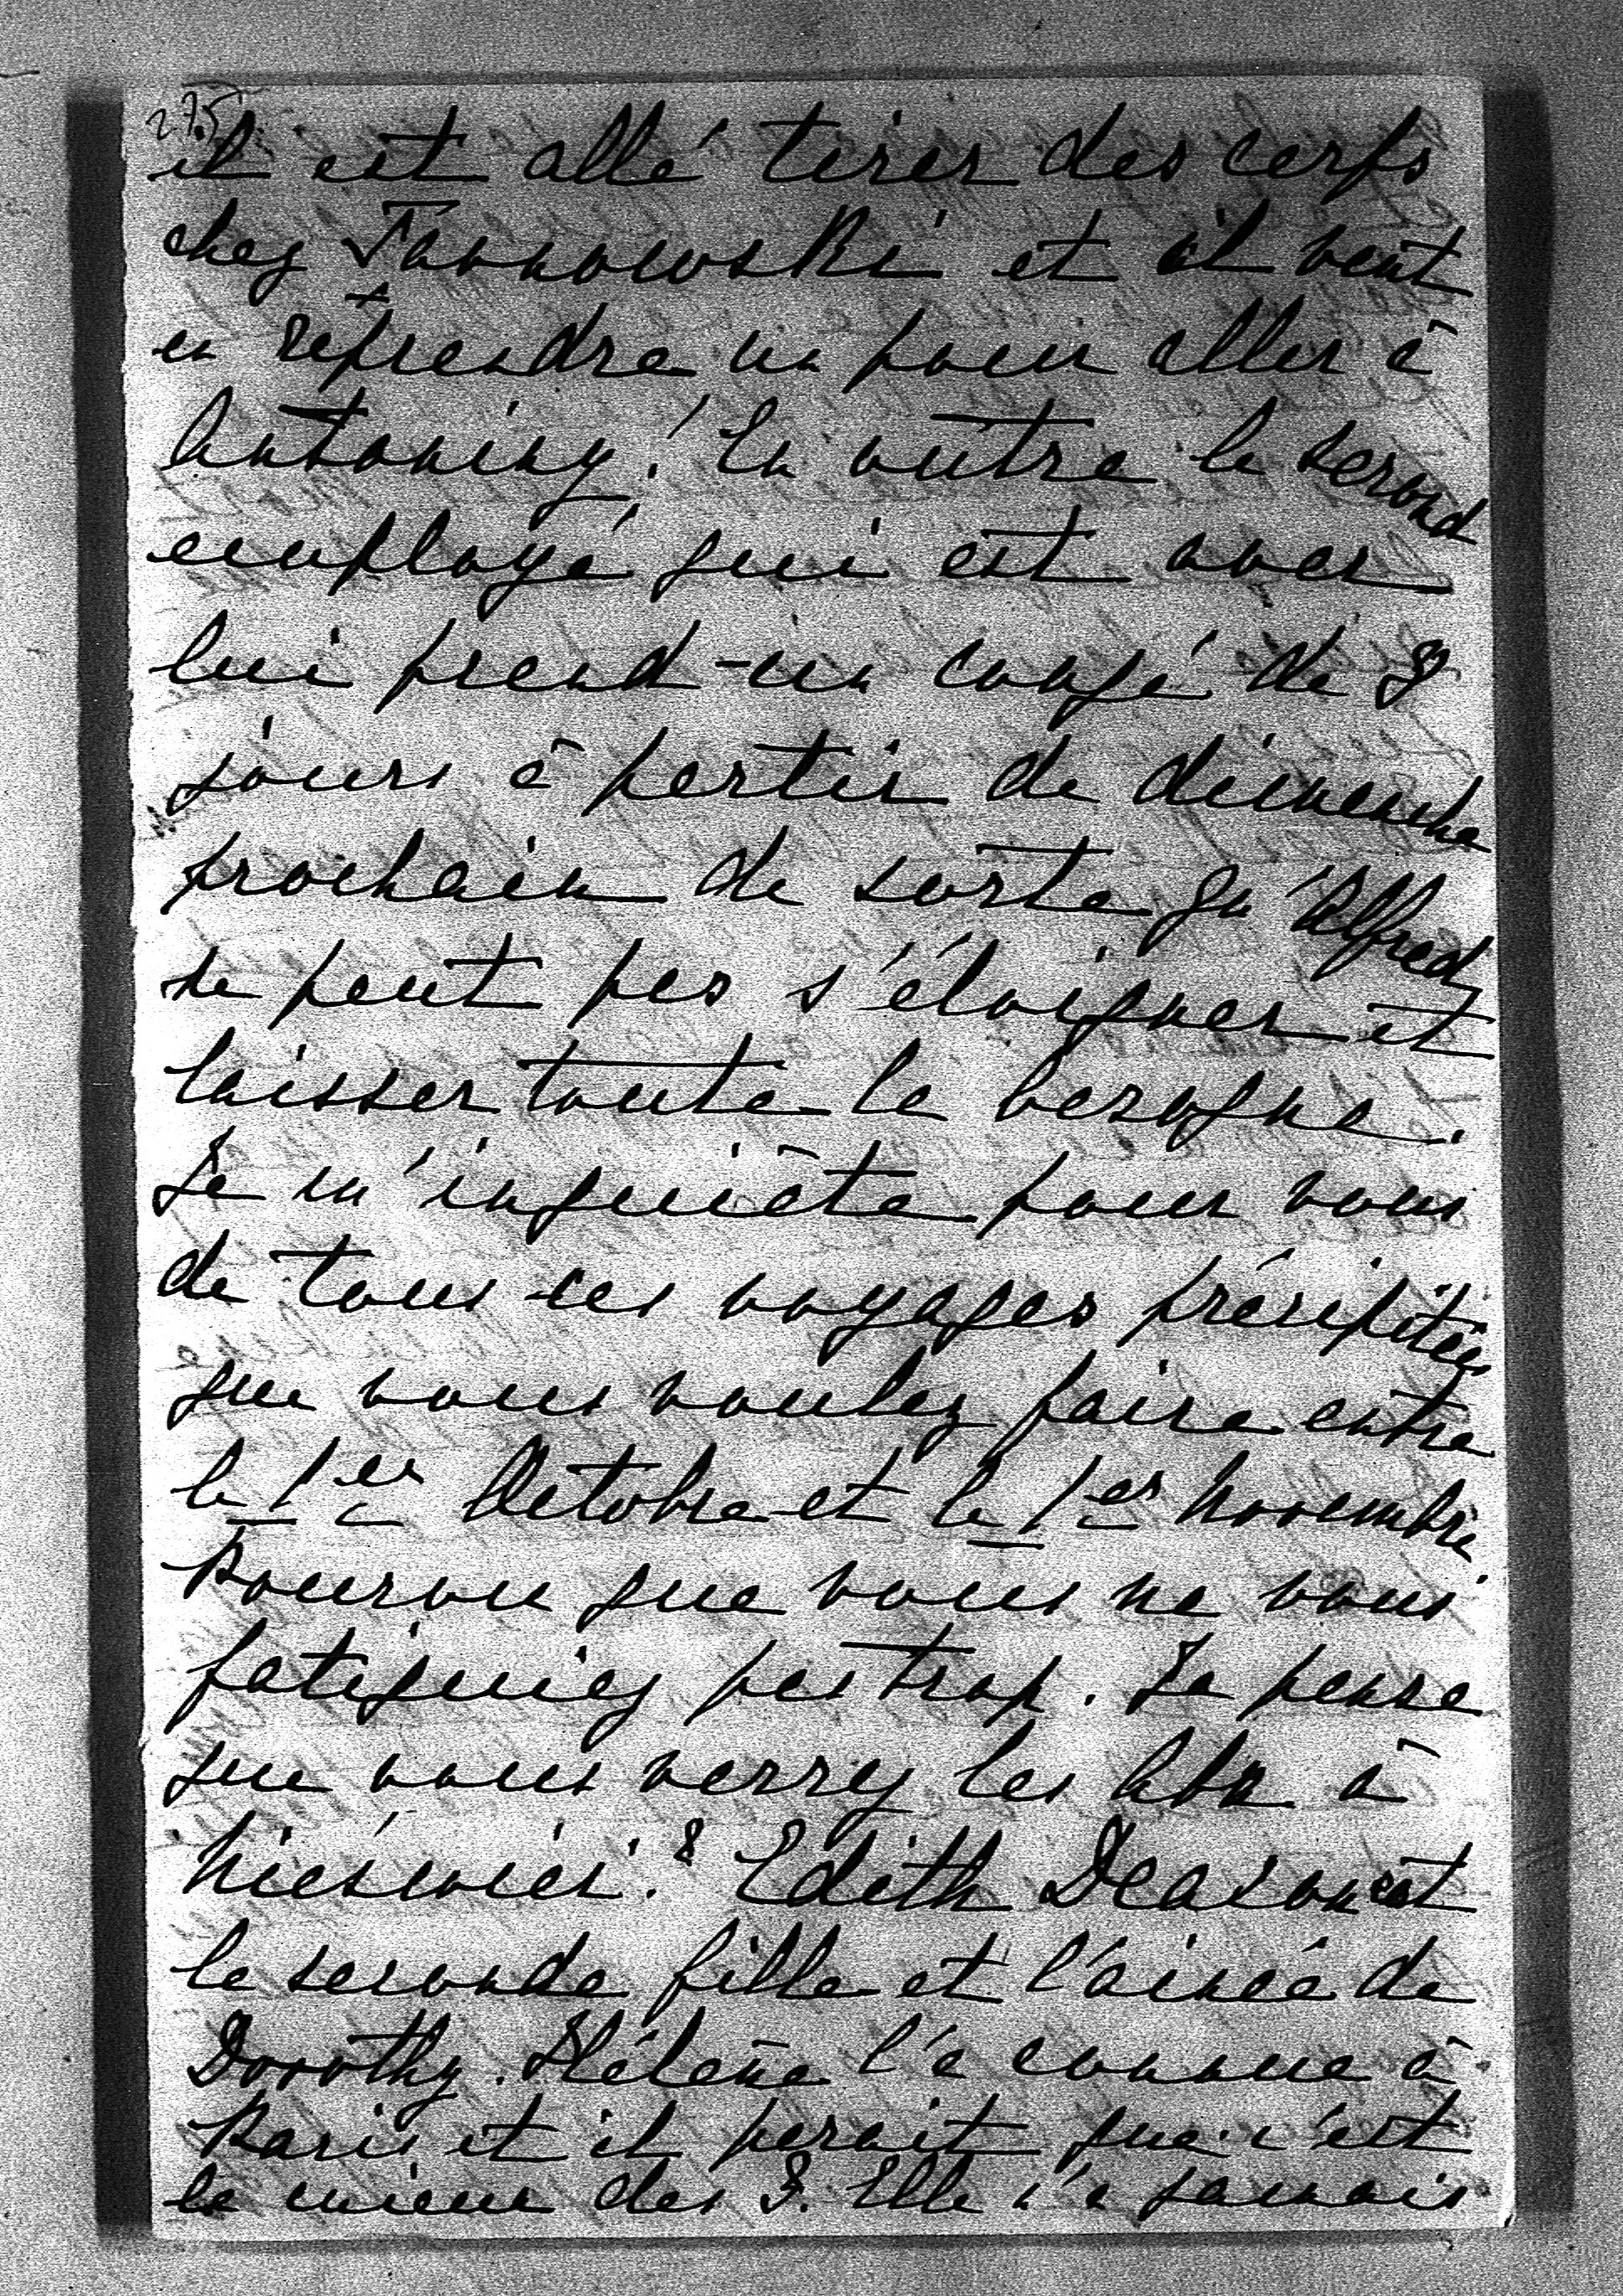 275
il est allé tirer des cerfs
chez Tarnowski et il veut
en reprendre un pour aller à
Antoniny! En outre le second
employé qui est avec
lui prend un congé de 8
jours à partir de dimanche
prochain de sorte qu'Alfred
ne peut pas s'éloigner et
laisser toute la besogne.
Je m'inquiète pour vous
de tous ces voyages précipités
que vous voulez faire entre
le 1er Octobre et le 1er Novembre
Pourvu que vous ne vous
fatiguiez pas trop. Je pense
que vous verrez les Abr à
Niéswież? Edith Deacon est
la seconde fille et l'ainée de
Dorothy. Hélène l'a connue à
Paris et il parait que c'est
la mieux des 3. Elle n'a jamais